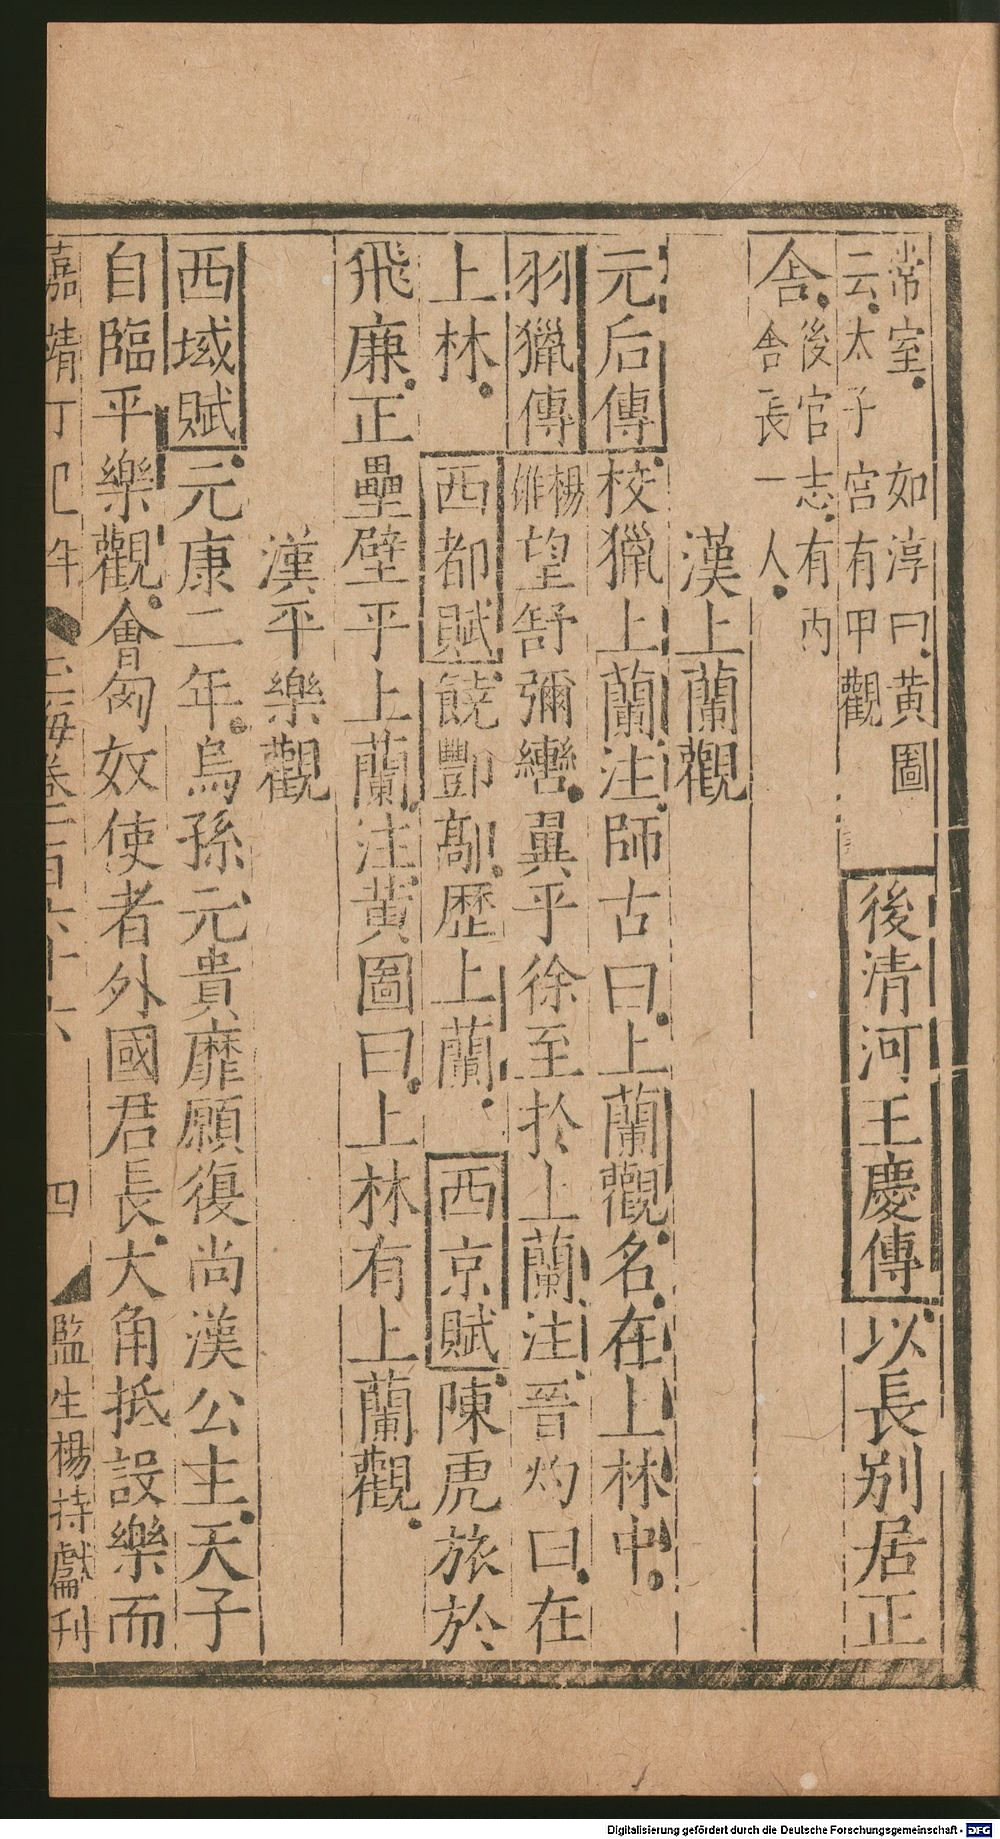 常室如淳曰黄圖
云太子宮有甲觀
後清河王慶傳以長別居正
舎後官志有内
舎長一人
漢上蘭觀
元后傳校獵上蘭注師古曰上蘭觀名在上林中
羽獵傳楊雄望舒彌轡翼乎徐至扵上蘭注晉灼曰在
上林西都賦饒酆鄗歴上蘭西京賦陳虎旅於
飛廉正壘壁乎上蘭注黄圖曰上林有上蘭觀
漢平樂觀
西域賦元康二年烏孫元貴靡願復尚漢公主天子
自臨平樂觀會匈奴使者外國君長大角抵設樂而
嘉靖丁巳年 玉海卷一百六十六 四 監生楊持獻刊
Digitalisierung gefördert durch die Deutsche Forschungsgemeinschaft - DFG